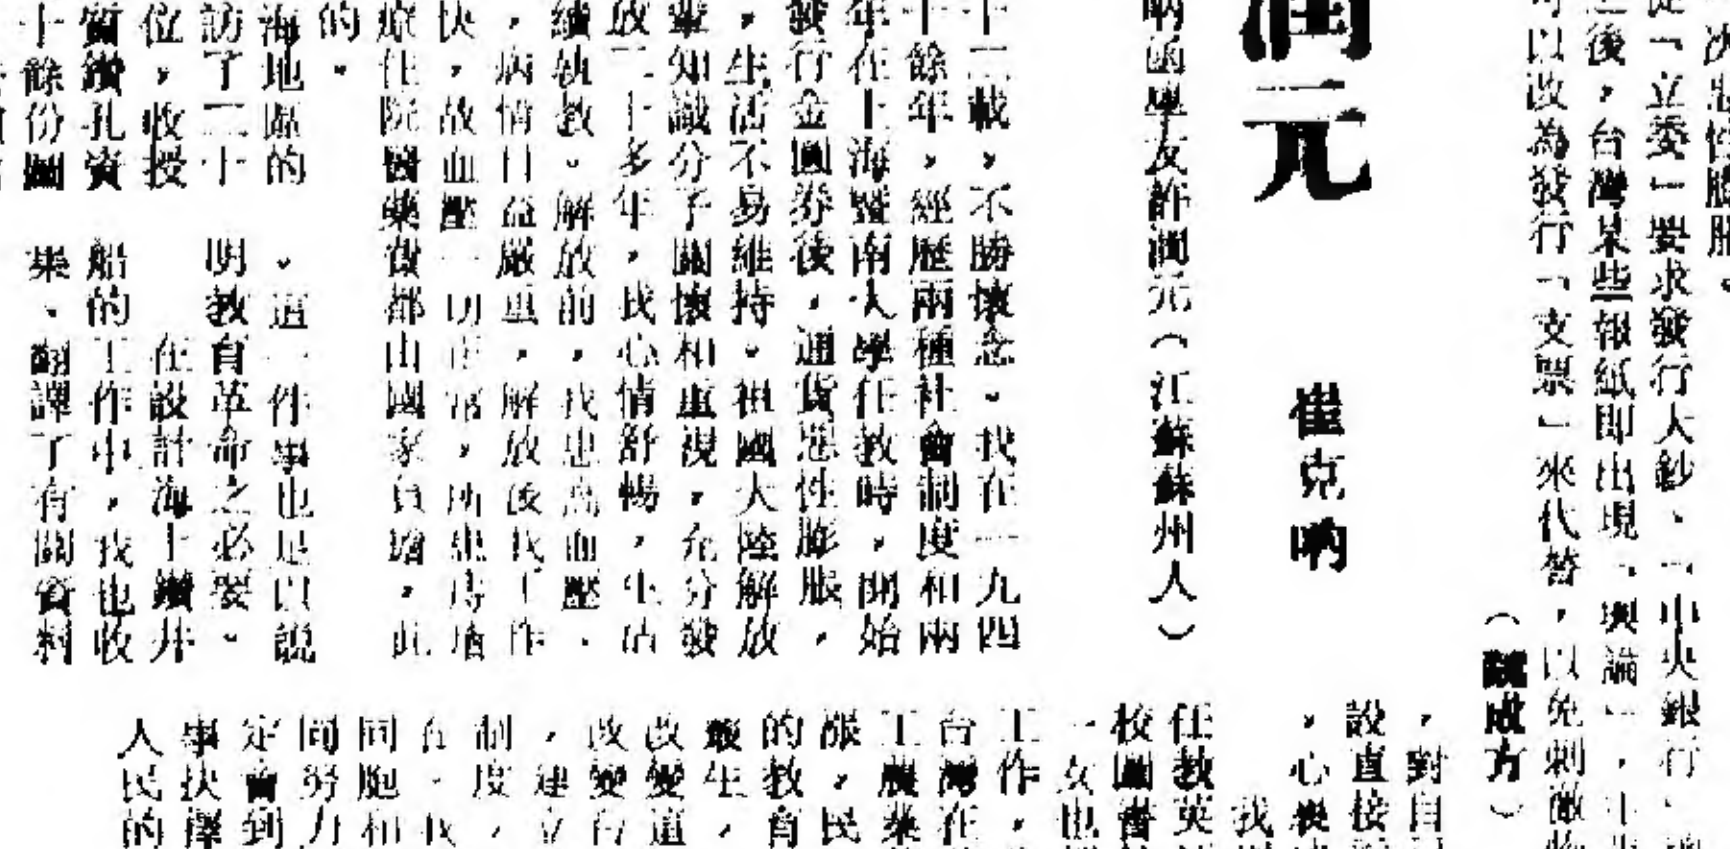 次惡性膨脹。
從「立委」要求發行大鈔、「中央銀行」
之後，台灣某些報紙即出現「輿論」，主
可以改為發行「支票」來代替，以免刺激物
（成方）
潤元
崔克吶
吶函學友許潤元（江蘇蘇州人）
十二載，不勝懷念。我在一九四
十餘年，經歷兩種社會制度和兩
年在上海暨南大學任教時，開始
發行金圓券後，通貨惡性膨脹，
，生活不易維持。祖國大陸解放
輩知識分子關懷和重視，充分發
放二十多年，我心情舒暢，生活
續執教。解放前，我患高血壓、
，病情日益嚴重，解放後我工作
快，故血壓一切正常，所患痔瘡
療住院醫藥費都由國家負擔，此
的。
海地區的
訪了二十
位，收授
質鑽孔資
十餘份圖
。這一件事也足以說
明教育革命之必要。
在設計海上鑽井
船的工作中，我也收
集、翻譯了有關資料
，對自
設直接
，心裏
我
任教英
校圖書
一女也
工作，
台灣在
工農業
漲，民
的教育
生，
改變這
改變行
，建立
制度，
在。我
同胞和
同努力
定會到
事抉擇
人民的